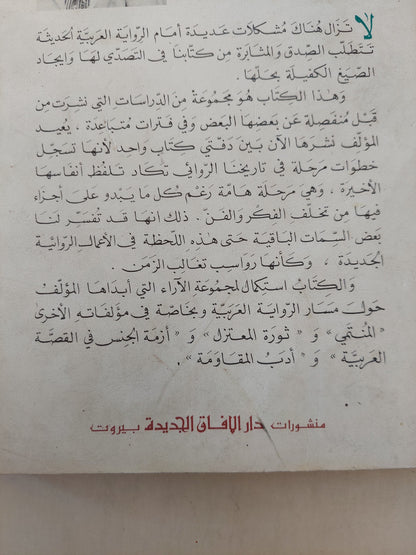 لا تزَال هُنَاك مُشكلَات عَديدَة أمَام الرّوَاية العَربيَّة الحَديثَة
تتَطلّب الصّدق والمثابَرة مِن كتّابنَا في التصَدّي لهَا وَايجَاد
الصّيَغ الكفيلَة بحَلّهَا .
وَهذا الكِتَاب هُو مَجمُوعَة منَ الدّرَاسَات التي نشِرَت مِن
قبْل مُنفصِلة عَن بعَضهَا البعَض وَفي فترَات مُتبَاعدَة ، يُعيد
المؤلّف نشرَهَا الآن بَين دَفتي كتَاب وَاحِد لأنهَا تسَجّل
خطوَات مَرحَلة في تاريخنَا الرّوَائي تكَاد تلفظ أنفاسهَا
الأخيرَة ، وَهيَ مَرحَلة هَامّة رَغم كُل مَا يَبدو عَلىَ أجزَاء
فيهَا مِن تخَلّف الفِكر وَالفنّ . ذلكَ انهَا قد تفسّر لنَا
بَعض السّمَات البَاقيَة حَتى هَذِهِ اللّحظَة في الأعمَال الرّوَائيّة
الجَديدَة ، وَكأنهَا رَوَاسِب تغَالب الزمَن .
وَالكتَاب اسْتكمَال لمجمُوعَة الآرَاء التي أبدَاهَا المؤلّف
حَولَ مسَار الرّوَاية العَرَبيَّة وَبخَاصَّة في مؤلّفاته الأخرىٰ
« المُنْتمي » وَ « ثورَة المعتزل » وَ « أزمَة الجِنس في القصَّة
العَربيَّة » وَ « أدَب المقاوَمَة » .
منشورات دار الافاق الجديدة بيروت